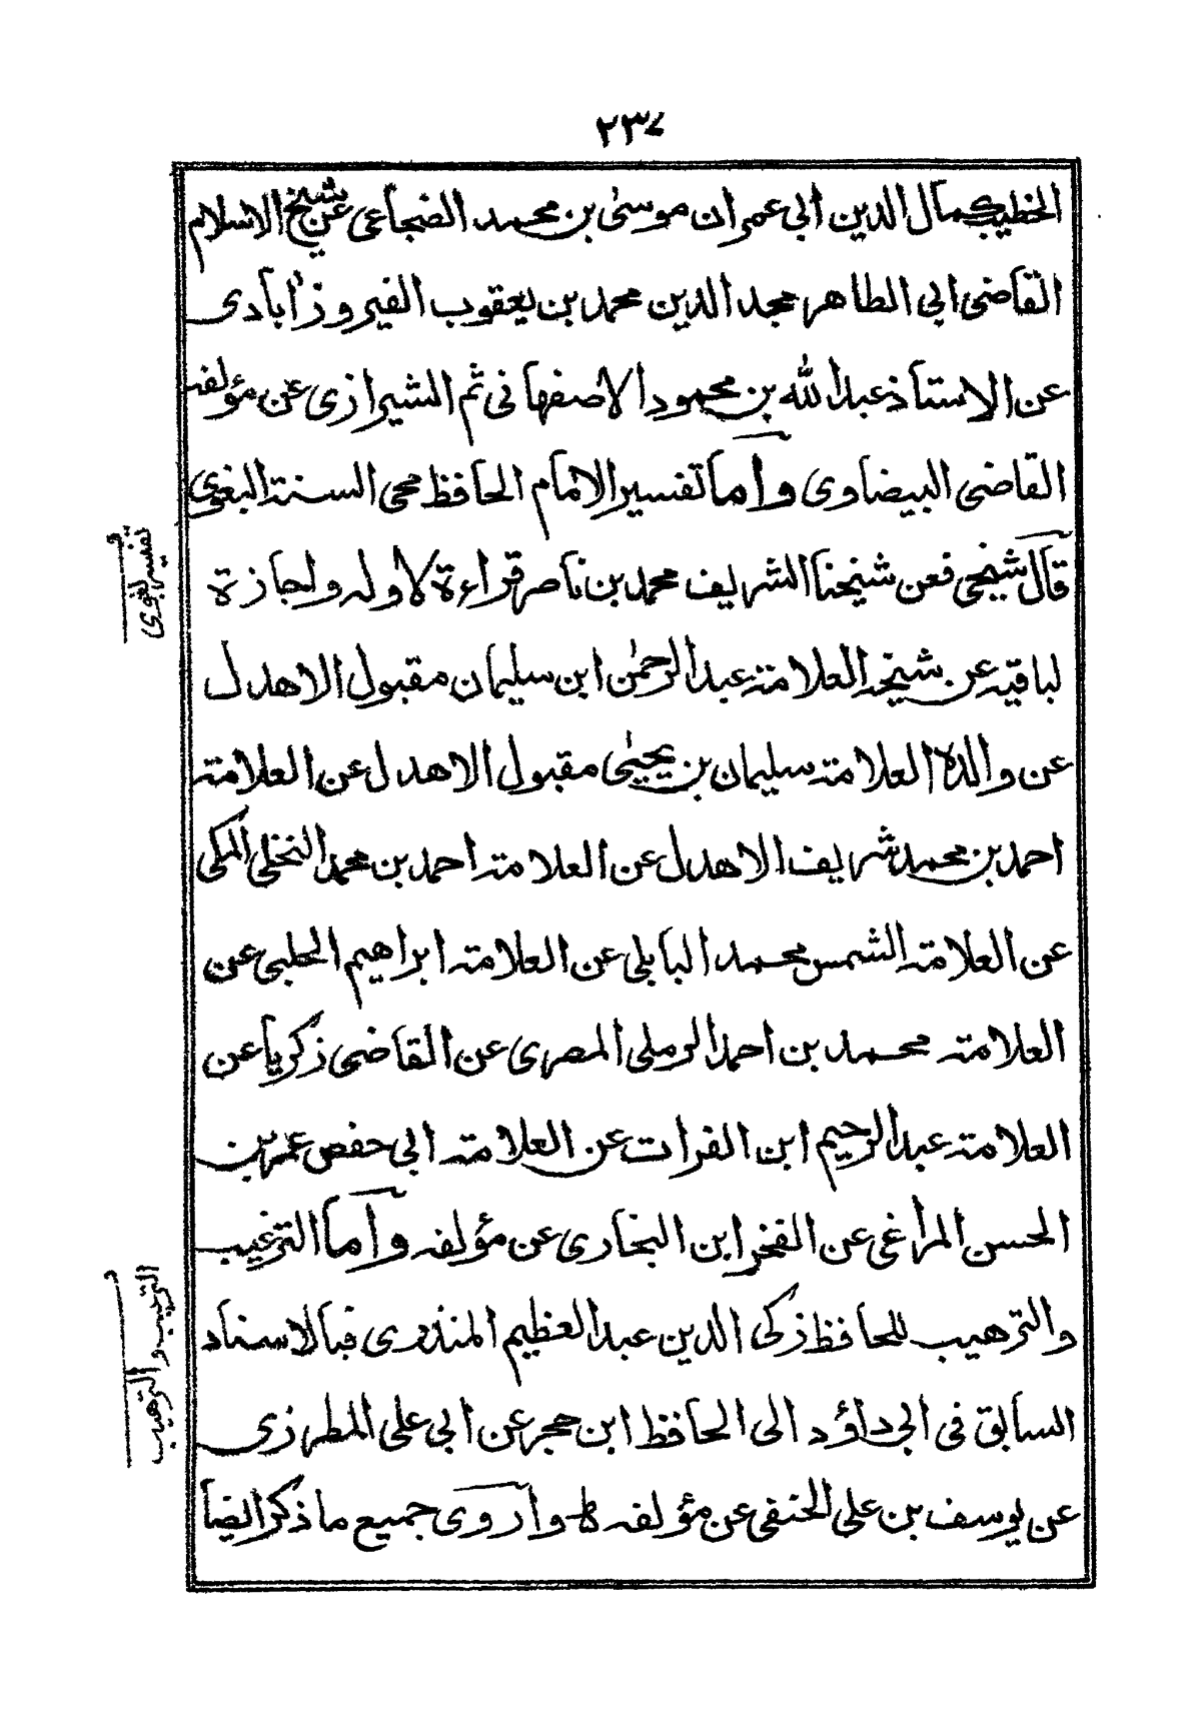 ٢٣٧
الخطيب كمال الدين ابي عمران موسىٰ بن محمد الضجاعى عن شيخ الاسلام
القاضى ابى الطاهر مجد الدين محمد بن يعقوب الفيروزآبادى
عن الاستاذ عبد الله بن محمود الاصفهانى ثم الشيرازى عن مؤلفه
القاضى البيضاوى وأما تفسير الامام الحافظ محى السنة البغوى
قال شيخى فعن شيخنا الشريف محمد بن ناصر قراءة لاوله واجازة
لباقيه عن شيخه العلامة عبد الرحمٰن ابن سليمان مقبول الاهدل
عن والده العلامة سليمان بن يحيىٰ مقبول الاهدل عن العلامة
احمد بن محمد شريف الاهدل عن العلامة احمد بن محمد النخلى المكى
عن العلامة الشمس محمد البابلى عن العلامة ابراهيم الحلبى عن
العلامة محمد بن احمد الرملى المصرى عن القاضى زكريا عن
العلامة عبد الرحيم ابن الفرات عن العلامة ابى حفص عمر بن
الحسن المراغى عن الفخر ابن البخارى عن مؤلفه وأما الترغيب
والترهيب للحافظ زكى الدين عبد العظيم المنذرى فبالاسناد
السابق فى ابى داؤد الى الحافظ ابن حجر عن ابى على المطرزى
عن يوسف بن على الحنفى عن مؤلفه ط وأروى جميع ما ذكر ايضا
تفسير البغوى
الترغيب والترهيب